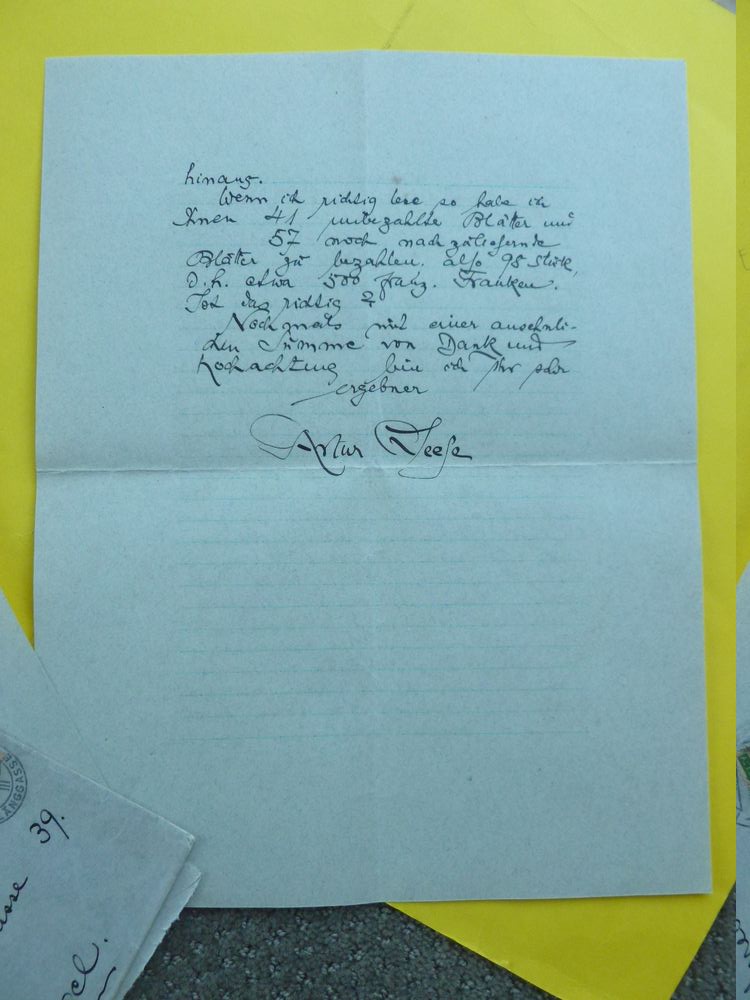 hinaus.
Wenn ich richtig lese so habe ich
Ihnen 41 unbezahlte Blätter und
57 noch nachzuliefernde
Blätter zu bezahlen. also 98 Stück,
d.h. etwa 500 franz. Franken.
Ist das richtig?
Nochmals mit einer ansehnli-
chen Summe von Dank und
Hochachtung bin ich Ihr sehr
ergebner
Artur
ÄNGGASSE
39.